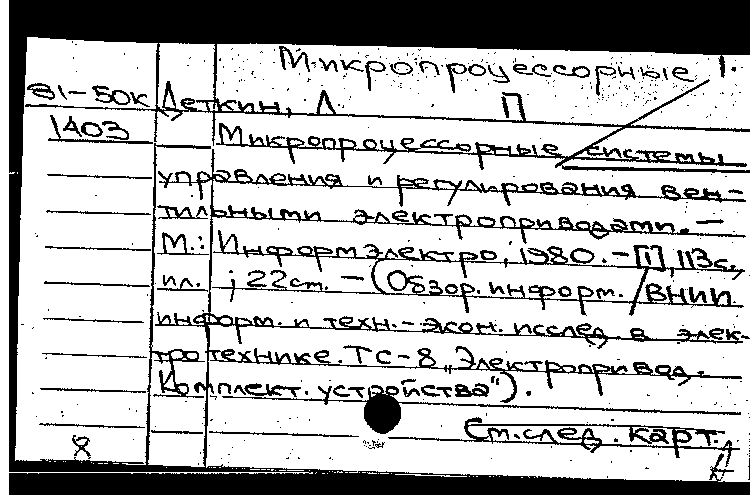 Микропроцессорные 1.
81-50к Деткин, Л. П
1403
Микропроцессорные системы
управления и регулирования вен-
тильными электроприводами. —
М.: Информэлектро, 1980. - [1], 113с.,
ил. ; 22см. — (Обзор. информ. / ВНИИ
информ. и техн.-экон. исслед. в элек-
тротехнике. ТС-8 „Электропривод.
Комплект. устройства").
См. след. карт.
8